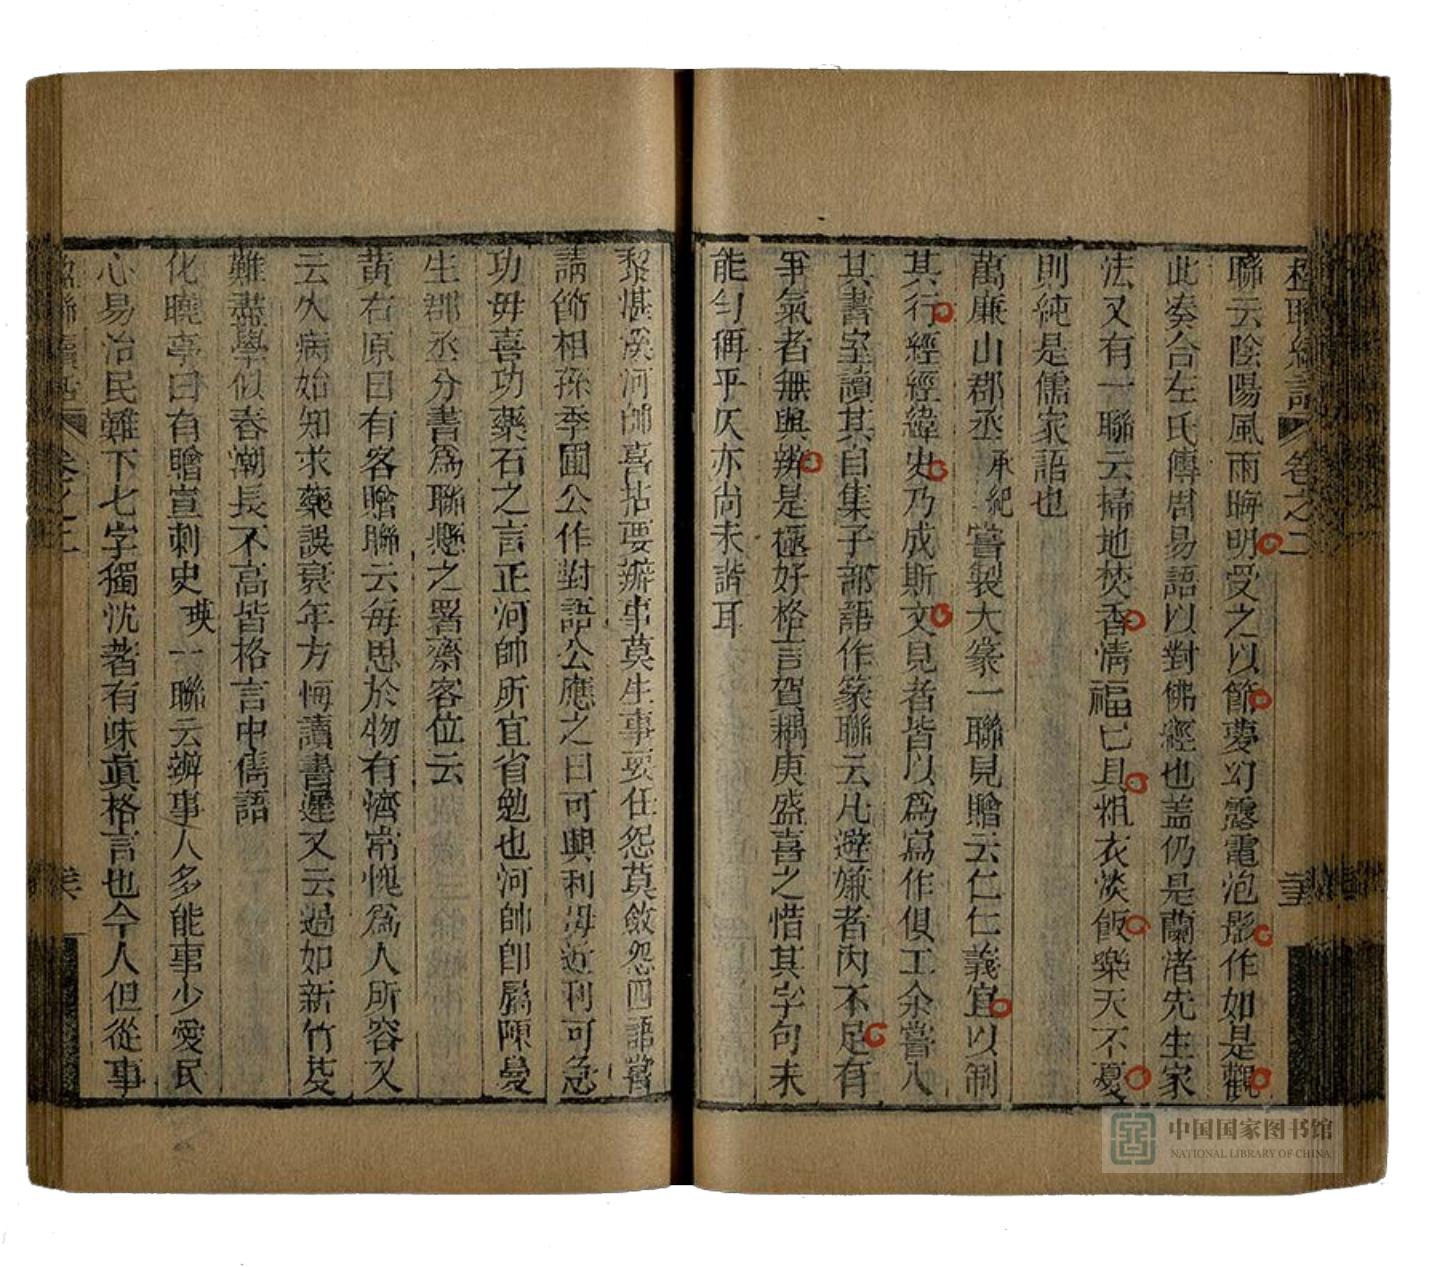 楹聯續話 卷之二 三
聯云陰陽風雨晦明受之以節夢幻露電泡影作如是觀
此奏合左氏傳周易語以對佛經也盖仍是蘭渚先生家
法又有一聯云掃地焚香情福已具粗衣淡飯樂天不憂
則純是儒家語也
萬廉山郡丞承紀嘗製大篆一聯見贈云仁仁義宜以制
其行經經緯史乃成斯文見者皆以爲寫作俱工余嘗入
其書室讀其自集子部語作篆聯云凡避嫌者內不足有
爭氣者無與辨是極好格言賀耦庚盛喜之惜其字句未
能勻稱平仄亦尚未諧耳
黎湛溪河帥喜拈要辦事莫生事要任怨莫斂怨四語嘗
請節相孫季圃公作對語公應之曰可興利毋近利可急
功毋喜功藥石之言正河帥所宜省勉也河帥卽屬陳曼
生郡丞分書爲聯懸之署齋客位云
黃右原曰有客贈聯云每思於物有濟常愧爲人所容又
云久病始知求藥誤衰年方悔讀書遲又云過如新竹芟
難盡學似春潮長不高皆格言中儁語
化曉亭曰有贈宣刺史瑛一聯云辦事人多能事少愛民
心易冶民難下七字獨沈著有味眞格言也今人但從事
楹聯續話 卷之二
中国国家图书馆
NATIONAL LIBRARY OF CHINA